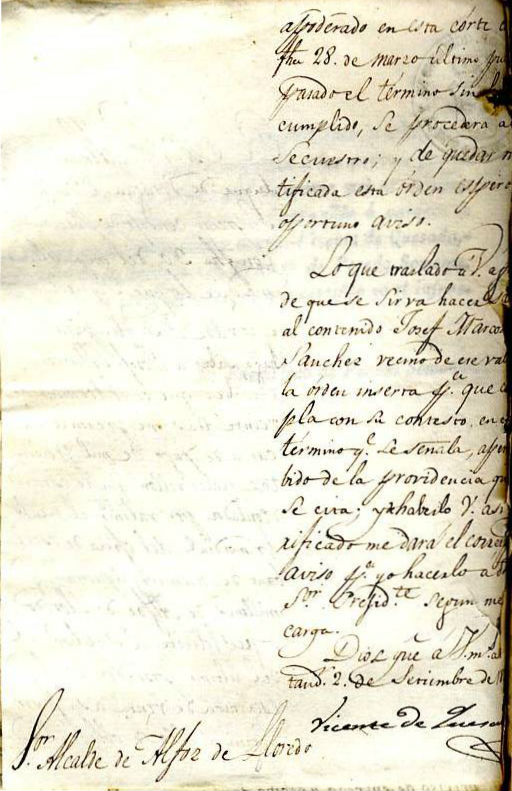 apoderado en esta córte
fha 28. de marzo último
pasado el término sin
cumplido, se procedera a
Secuestro; y de quedar
tificada esta órden espero
oportuno aviso.
Lo que traslado á V. a
de que se sirva hacer
al contenido Josef Marco
Sanchez vecino de ese
la orden inserta p.ª que
pla con su contesto en
término q.e se señala, aper
bido de la providencia
se cita; y habilo V. as
rificado me dará el
aviso p.ª yo hacerlo a
S.or Presid.te segun me
carga.
Dios gue á V. m.s a
tand.r 2. de Setiembre de
Vicente de
S.or Alcalde de Alfoz de Lloredo